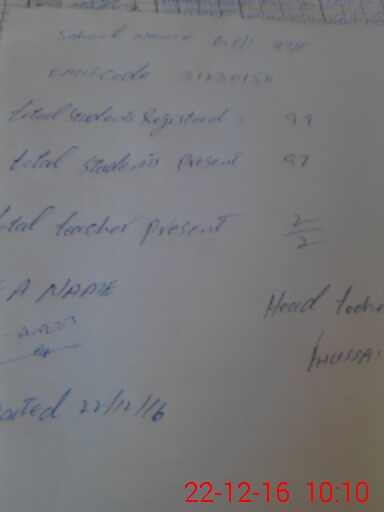 School Name G P/S 97/1
EMIS Code 31230150
total students Registered: 99
total students present 97
otal teacher present 2/2
A NAME
Head teache
HUSSAI
ated 22/12/16
22-12-16 10:10